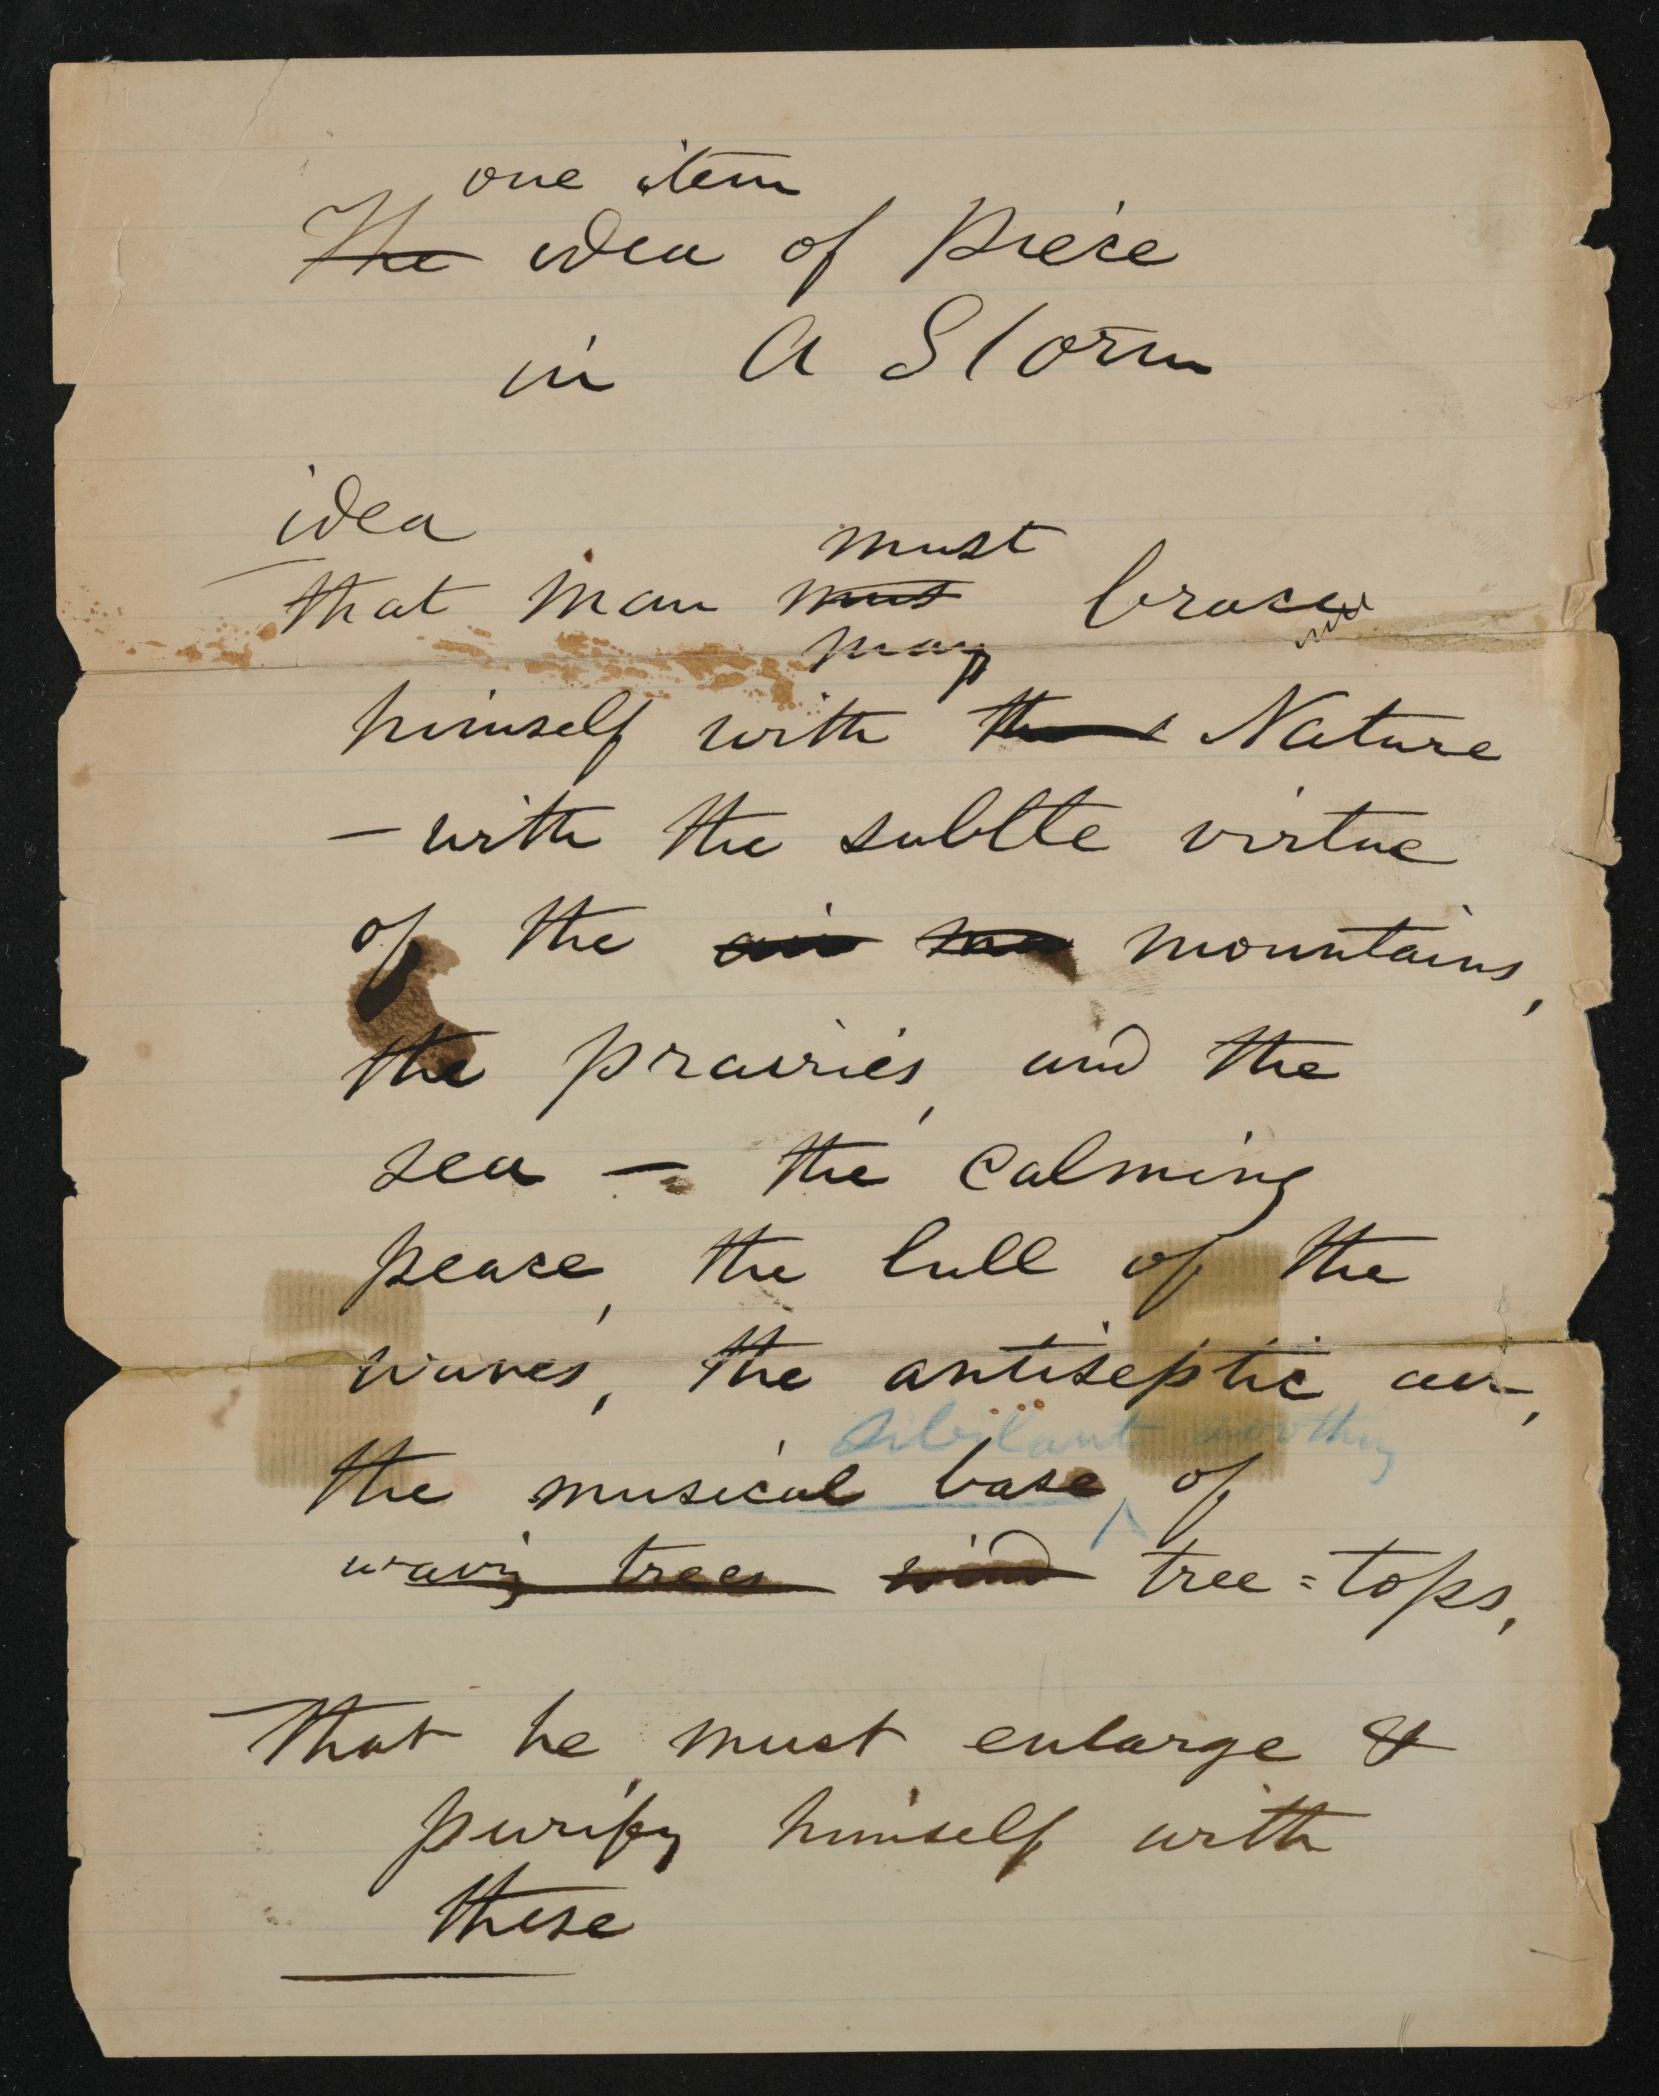 one item
The idea of piece
in A Storm
idea
must
that man must brace
may
himself with the Nature
– with the subtle virtue
of the air mo mountains,
the prairies, and the
sea – the calming
peace, the lull of the
waves, the antiseptic air,
sibilant soothing
the musical base, of
waving trees wind tree=tops.
That he must enlarge &
purify himself with
these